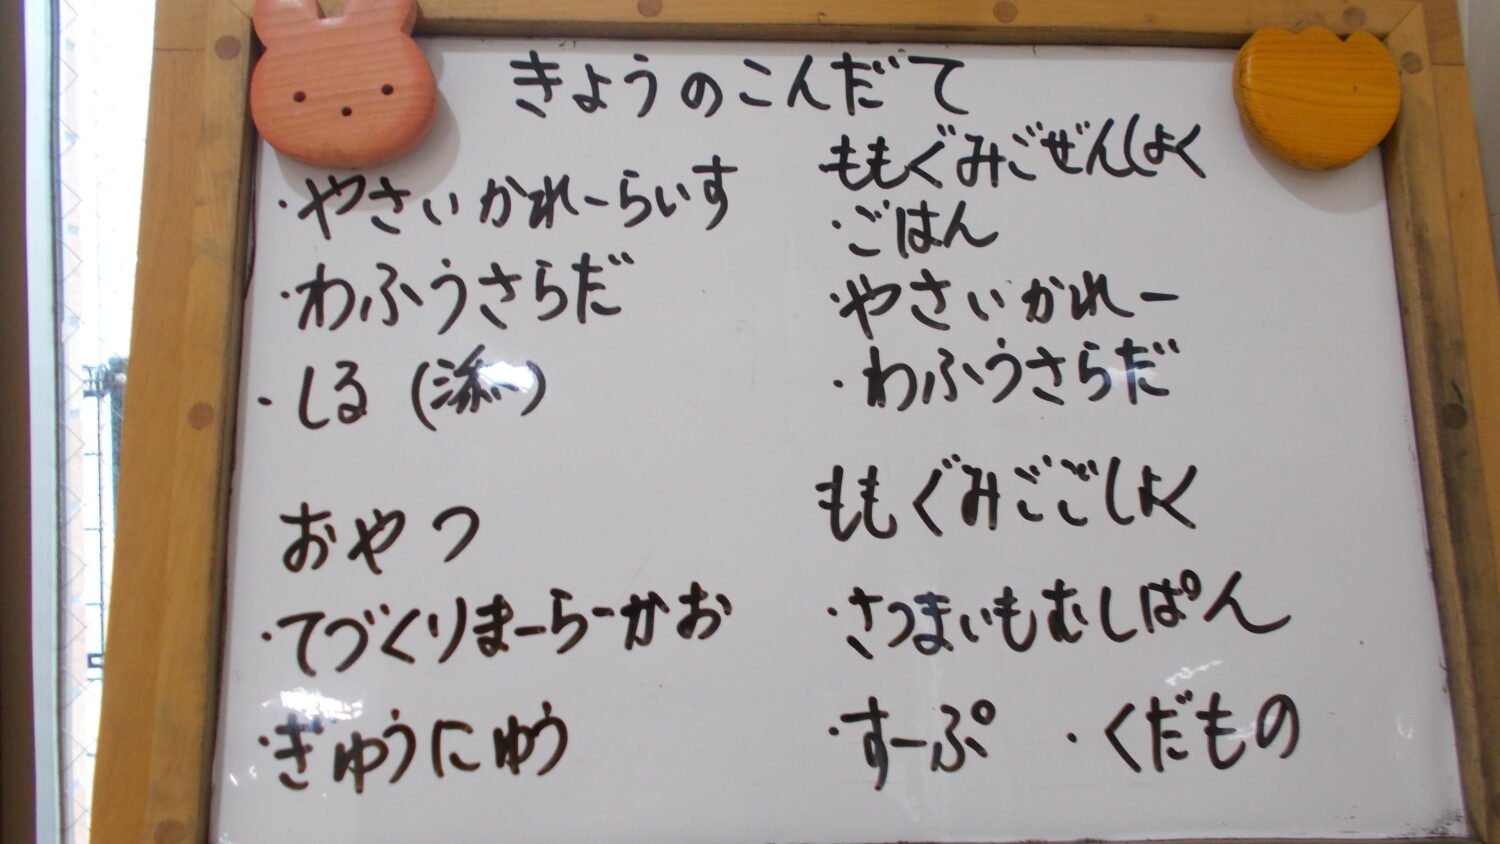 きょうのこんだて
・やさいかれーらいす
・わふうさらだ
・しる(添)
おやつ
・てづくりまーらーかお
・ぎゅうにゅう
ももぐみごぜんしょく
・ごはん
・やさいかれー
・わふうさらだ
ももぐみごごしょく
・さつまいもむしぱん
・すーぷ ・くだもの